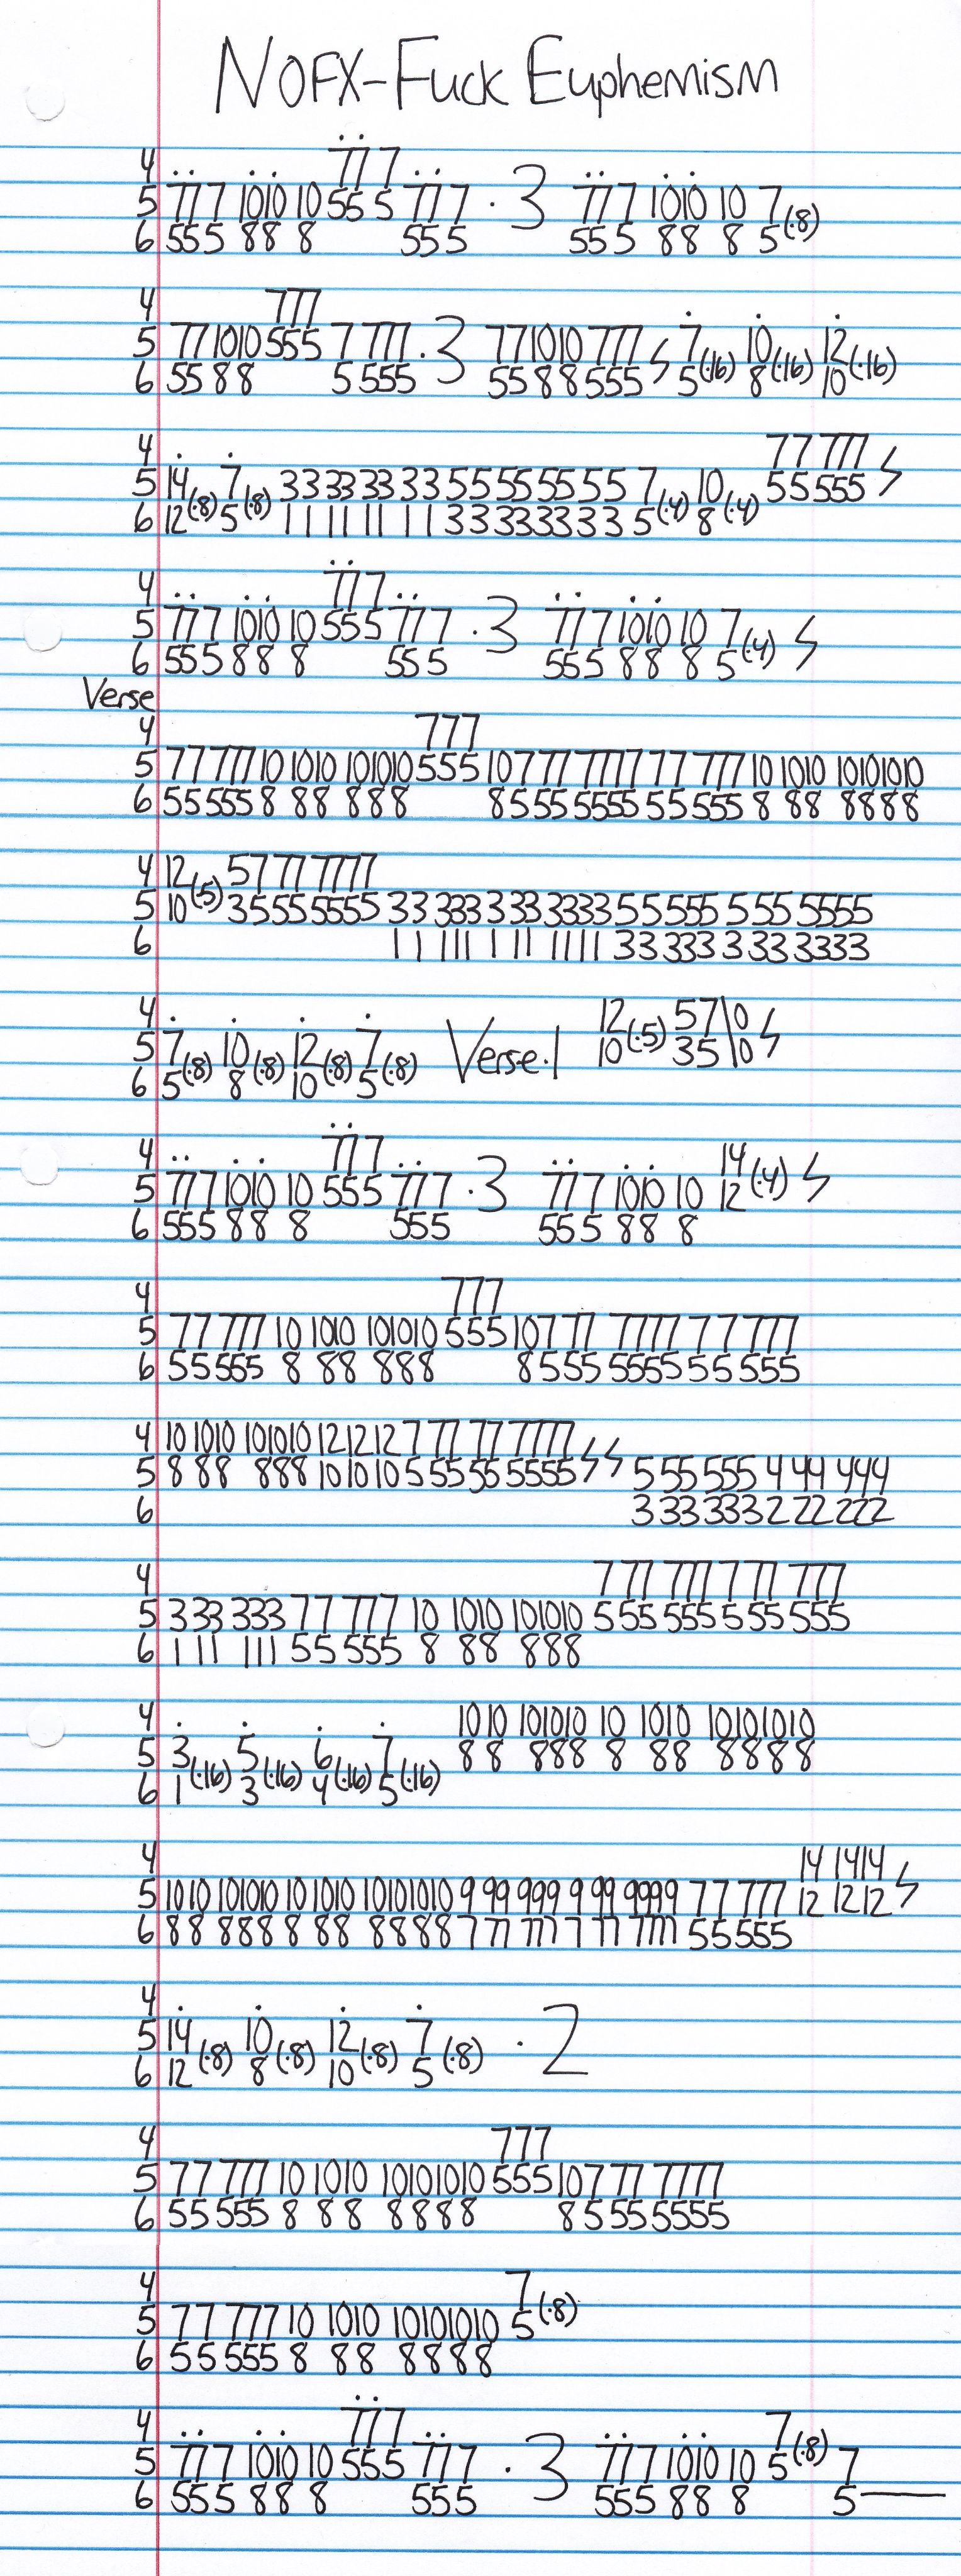 NOFX-Fuck Euphemism
4 777
5 777 101010 555 777 · 3 777 101010 7
6 555 888 555 555 888 5(·8)
4 777
5 77 1010 555 7 777 · 3 77 1010 777 ϟ 7(·16) 10(·16) 12(·16)
6 55 88 5 555 55 88 555 5 8 10
4 77 777
5 14(·8) 7(·8) 33 33 33 33 55 55 55 55 7(·4) 10(·4) 55 555 ϟ
6 12 5 11 11 11 11 33 33 33 33 5 8
4 777
5 777 1010 10 555 777 · 3 777 1010 10 7(·4) ϟ
6 555 88 8 555 555 88 8 5
Verse
4 777
5 77 777 10 1010 101010 555 10 7 77 7777 77 777 10 1010 10101010
6 55 555 8 88 888 8 5 55 5555 55 555 8 88 8888
4 12(·5) 57 77 7777
5 10 35 55 5555 33 333 3 33 3333 55 555 5 55 5555
6 11 111 1 11 1111 33 333 3 33 3333
4 12(·5) 57\0 ϟ
5 7(·8) 10(·8) 12(·8) 7(·8) Verse·1 10 35\0
6 5 8 10 5
4 777 14(·4) ϟ
5 777 1010 10 555 777 · 3 777 1010 10 12
6 555 88 8 555 555 88 8
4 777
5 77 777 10 1010 101010 555 10 7 77 7777 77 777
6 55 555 8 88 888 8 5 55 5555 55 555
4 10 1010 101010 12 12 12 7 77 77 7777 ϟϟ
5 8 88 888 10 10 10 5 55 55 5555 5 55 555 4 44 444
6 3 33 333 2 22 222
4 7 77 777 7 77 777
5 3 33 333 77 777 10 1010 101010 5 55 555 5 55 555
6 1 11 111 55 555 8 88 888
4 1010 101010 10 1010 10101010
5 3(·16) 5(·16) 6(·16) 7(·16) 88 888 8 88 8888
6 1 3 4 5
4 14 1414 ϟ
5 1010 101010 10 1010 10101010 9 99 999 9 99 9999 77 777 12 1212
6 88 888 8 88 8888 7 77 777 7 77 7777 55 555
4
5 14(·8) 10(·8) 12(·8) 7(·8) · 2
6 12 8 10 5
4 777
5 77 777 10 1010 10101010 555 10 7 77 7777
6 55 555 8 88 8888 8 5 55 5555
4 7(·8)
5 77 777 10 1010 10101010 5
6 55 555 8 88 8888
4 777 7(·8)
5 777 1010 10 555 777 · 3 777 1010 10 5 7
6 555 88 8 555 555 88 8 5——